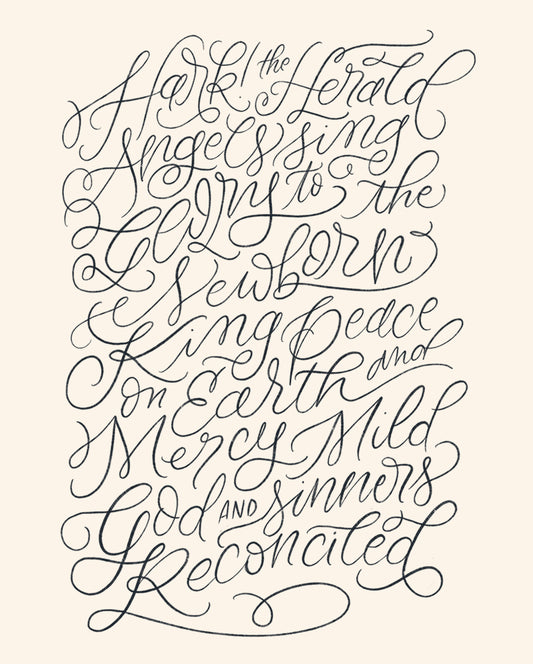 Hark! the Herald
Angels sing
Glory to the
Newborn
King peace
on Earth and
Mercy Mild
God AND sinners
Reconciled